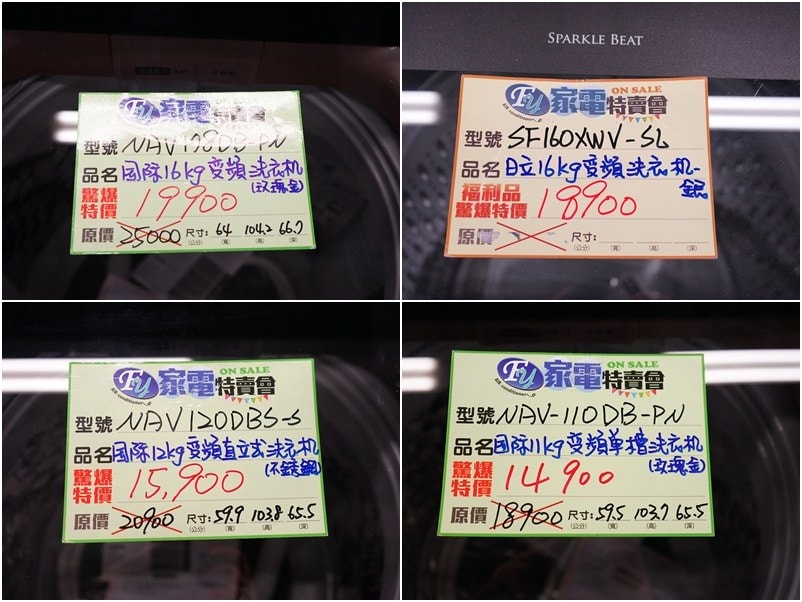 Fu 家電特賣會
型號 NAV178DB-PN
品名 国际16kg变頻洗衣机
(玫瑰金)
驚爆特價 19900
原價 25000 尺寸: 64 104.2 66.7
(公分) (寬) (高) (深)
SPARKLE BEAT
ON SALE
Fu 家電特賣會
air conditioner
型號 SF160XWV-SL
品名 日立16kg变頻洗衣机-銀
福利品
驚爆特價 18900
原價 尺寸:
(公分) (寬) (高) (深)
ON SALE
Fu 家電特賣會
air conditioner
型號 NAV120DBS-S
品名 国际12kg变頻直立式洗衣机
(不銹鋼)
驚爆特價 15,900
原價 20900 尺寸: 59.9 103.8 65.5
(公分) (寬) (高) (深)
ON SALE
Fu 家電特賣會
air conditioner
型號 NAV-110DB-PN
品名 国际11kg变頻單槽洗衣机
(玫瑰金)
驚爆特價 14900
原價 18900 尺寸: 59.5 103.7 65.5
(公分) (寬) (高) (深)